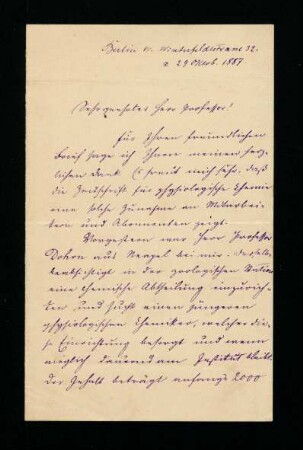 Berlin W. Winterfeldtstrasse 32.
d 29 Oktob. 1887
Sehr geehrter Herr Professor!
Für Ihren freundlichen
Brief sage ich Ihnen meinen herz-
lichen Dank. Es freut mich sehr, daß
die Zeitschrift für physiologische Chemie
eine solche Zunahme an Mitarbei-
tern und Abonnenten zeigt.
Vorgestern war Herr Professor
Dohrn aus Neapel bei mir. Derselbe
beabsichtigt in der zoologischen Station
eine chemische Abtheilung einzurich-
ten und sucht einen jüngeren
physiologischen Chemiker, welcher die-
se Einrichtung besorgt und wenn
möglich dauernd am Institut bleibt.
Der Gehalt beträgt anfangs 2000